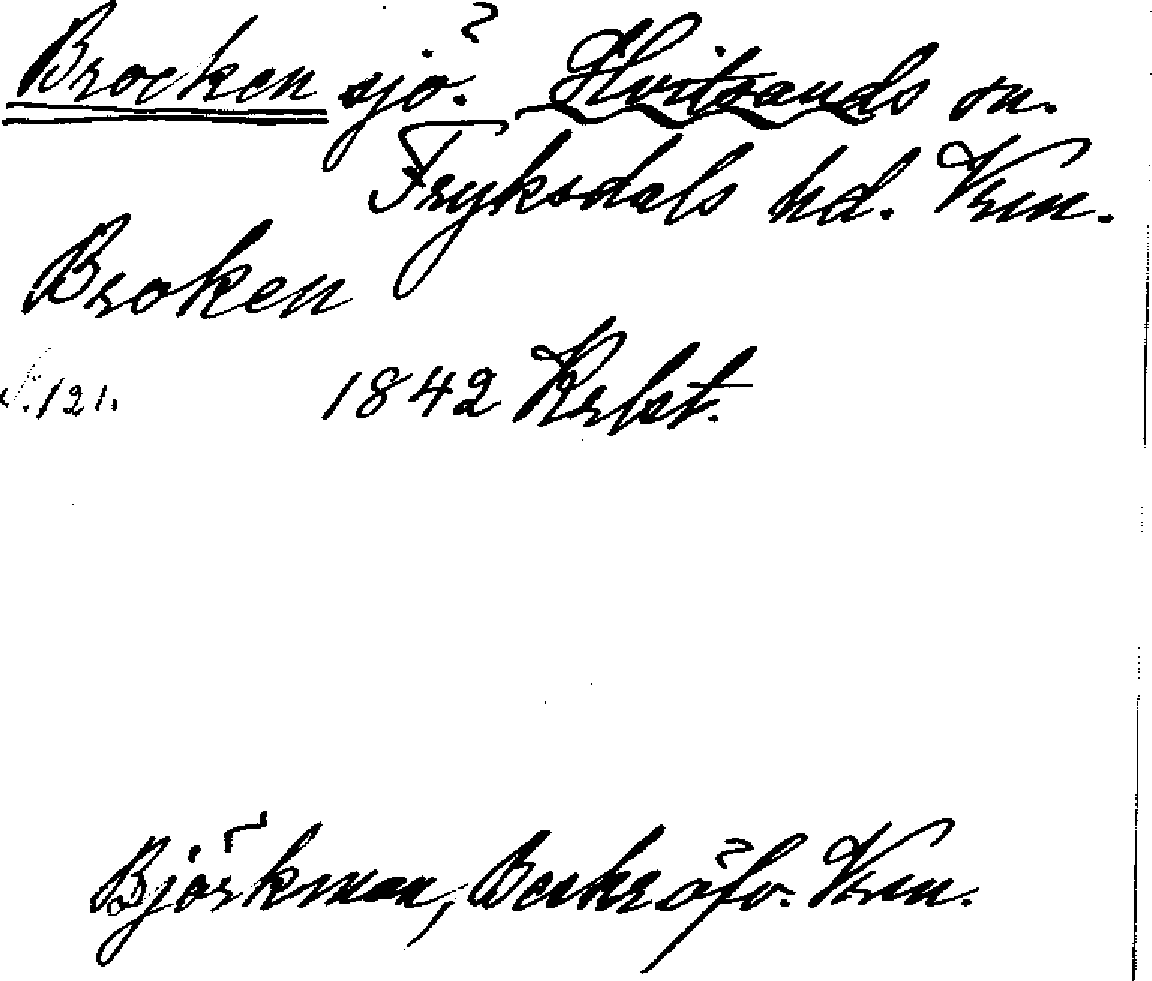 Brocken sjö. Hvitsands sn.
Fryksdals hd. Vrm.
Broken
S. 121. 1842 Krlst.
Björkman, Beskr. öfv. Vrm.